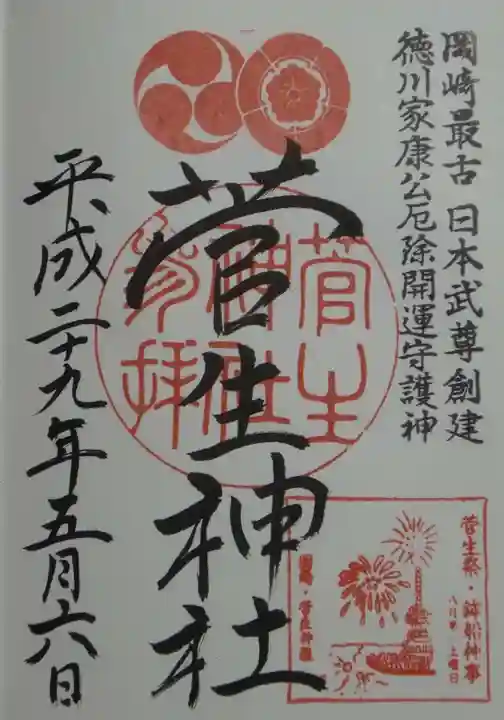 岡崎最古 日本武尊創建
徳川家康公厄除開運守護神
菅生神社
菅生神社参拝
平成二十九年五月六日
菅生祭・鉾船神事
八月第一土曜日
岡崎・菅生神社